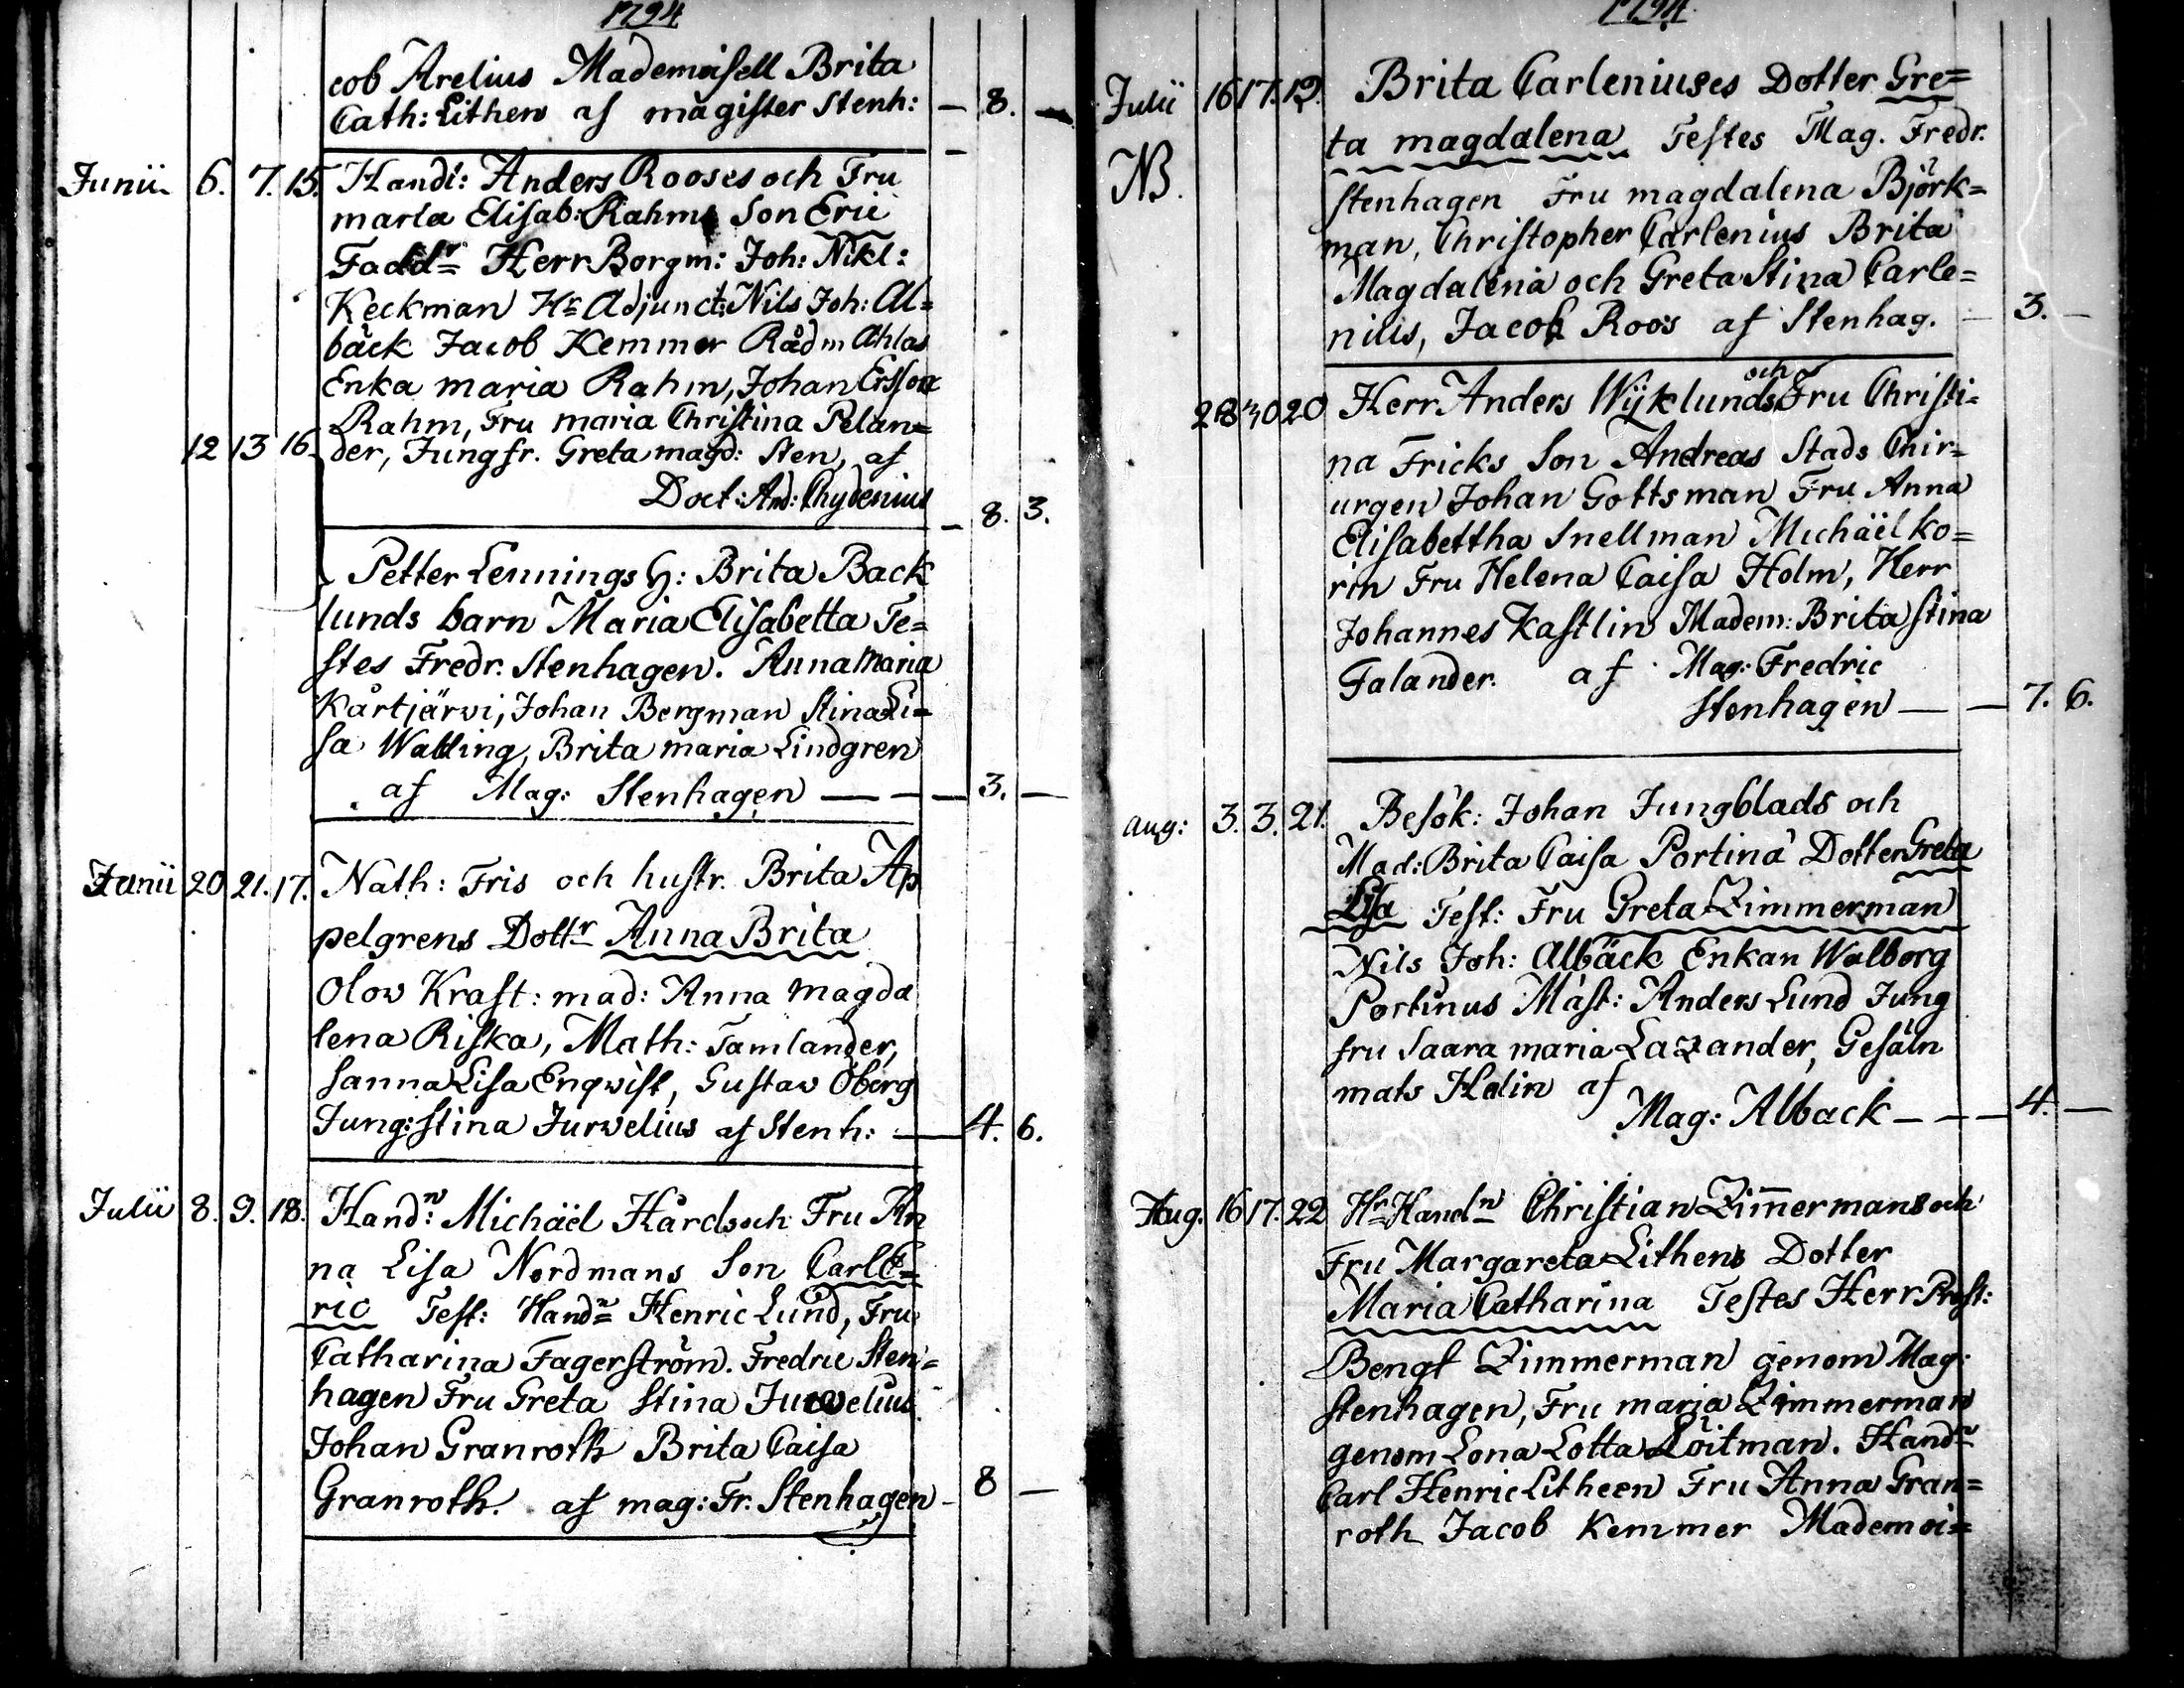 1794
cob Arelius Mademoisell Brita
Cath: Lithen af magister Stenh: — 8. —
Junii 6. 7. 15. Handl: Anders Rooses och Fru
maria Elisab: Rahms Son Eric
Faddr Herr Borgm: Joh: Nikl:
Keckman Hr Adjunct: Nils Joh: Al=
bäck Jacob Kemmer Rådm Ahlas
Enka maria Rahm, Johan Ersson
Rahm, Fru maria Christina Pelan=
12 13 16 der, Jungfr. Greta magd: Sten, af
Doct: And: Chydenius — 8. 3.
Petter Lennings H: Brita Back
lunds barn Maria Elisabetta Te=
stes Fredr. Stenhagen. Anna Maria
Kårtjärvi, Johan Bergman Stina Li=
sa Walling, Brita maria Lindgren
af Mag: Stenhagen — — — 3. —
Junii 20 21. 17. Nath: Fris och hustr. Brita Ap
pelgrens Dottr Anna Brita
Olow Krast: mad: Anna Magda
lena Riska, Math: Tamlander,
Sanna Lisa Enqwist, Gustaw Öberg
Jung: Stina Jurvelius af Stenh: — 4. 6.
Julii 8. 9. 18. Handn: Michäel Hårds och Fru An
na Lisa Nordmans Son Carl E=
ric Test: Handn Henric Lund, Fru
Catharina Fagerström. Fredric Sten=
hagen Fru Greta Stina Juwelius
Johan Granroth Brita Caisa
Granroth. af mag: Fr. Stenhagen — 8 —
1794
Julii 16 17. 19. Brita Carleniuses Dotter Gre=
ta magdalena Testes Mag. Fredr.
NB. Stenhagen Fru magdalena Björk=
man, Christopher Carlenius Brita
Magdalena och Greta Stina Carle=
nius, Jacob Roos af Stenhag. — 3. —
och
28 30 20 Herr Anders Wijklunds Fru Christi=
na Fricks Son Andreas Stads Chir=
urgen Johan Gottsman Fru Anna
Elisabettha Snellman Michäel Ko=
rin Fru Helena Caisa Holm, Herr
Johannes Kastlin Madem: Brita Stina
Falander. af Mag: Fredric
Stenhagen — — 7. 6.
Aug: 3. 3. 21. Besök: Johan Jungblads och
Mad: Brita Caisa Portina Dotter Greta
Lisa Test: Fru Greta Zimmerman
Nils Joh: Albäck Enkan Walborg
Portinus Mäst: Anders Lund Jung
fru Saara maria Lazander, Gesäln
mats Halin af
Mag: Alback — — — 4. —
Aug. 16 17. 22 Hr Handn Christian Zimmermans och
Fru Margareta Lithens Dotter
Maria Catharina Testes Herr Prost:
Bengt Zimmerman genom Mag:
Stenhagen, Fru maria Zimmerman
genom Lona Lotta Löitman. Handn
Carl Henric Litheen Fru Anna Gran=
roth Jacob Kemmer Mademoi=